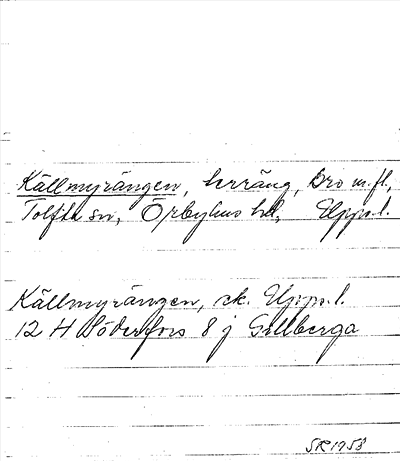 Källmyrängen, herräng, Bro m.fl.,
Tolfta sn, Örbyhus hd, Uppl.
Källmyrängen, ek. Uppl.
12 H Söderfors 8 j Gullberga
SR 1958